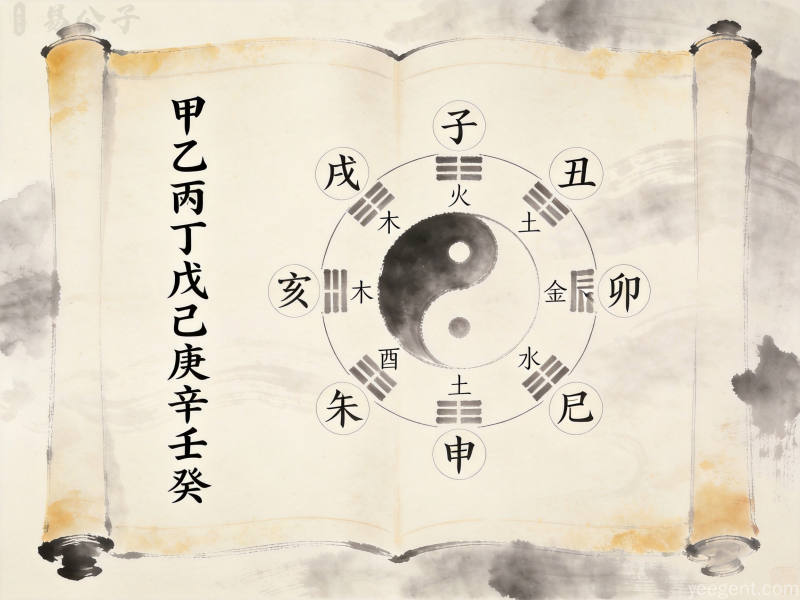 易公子
甲乙丙丁戊己庚辛壬癸
子
丑
卯
申
朱
亥
戌
火
土
金
辰
水
土
酉
木
木
yeegent.com